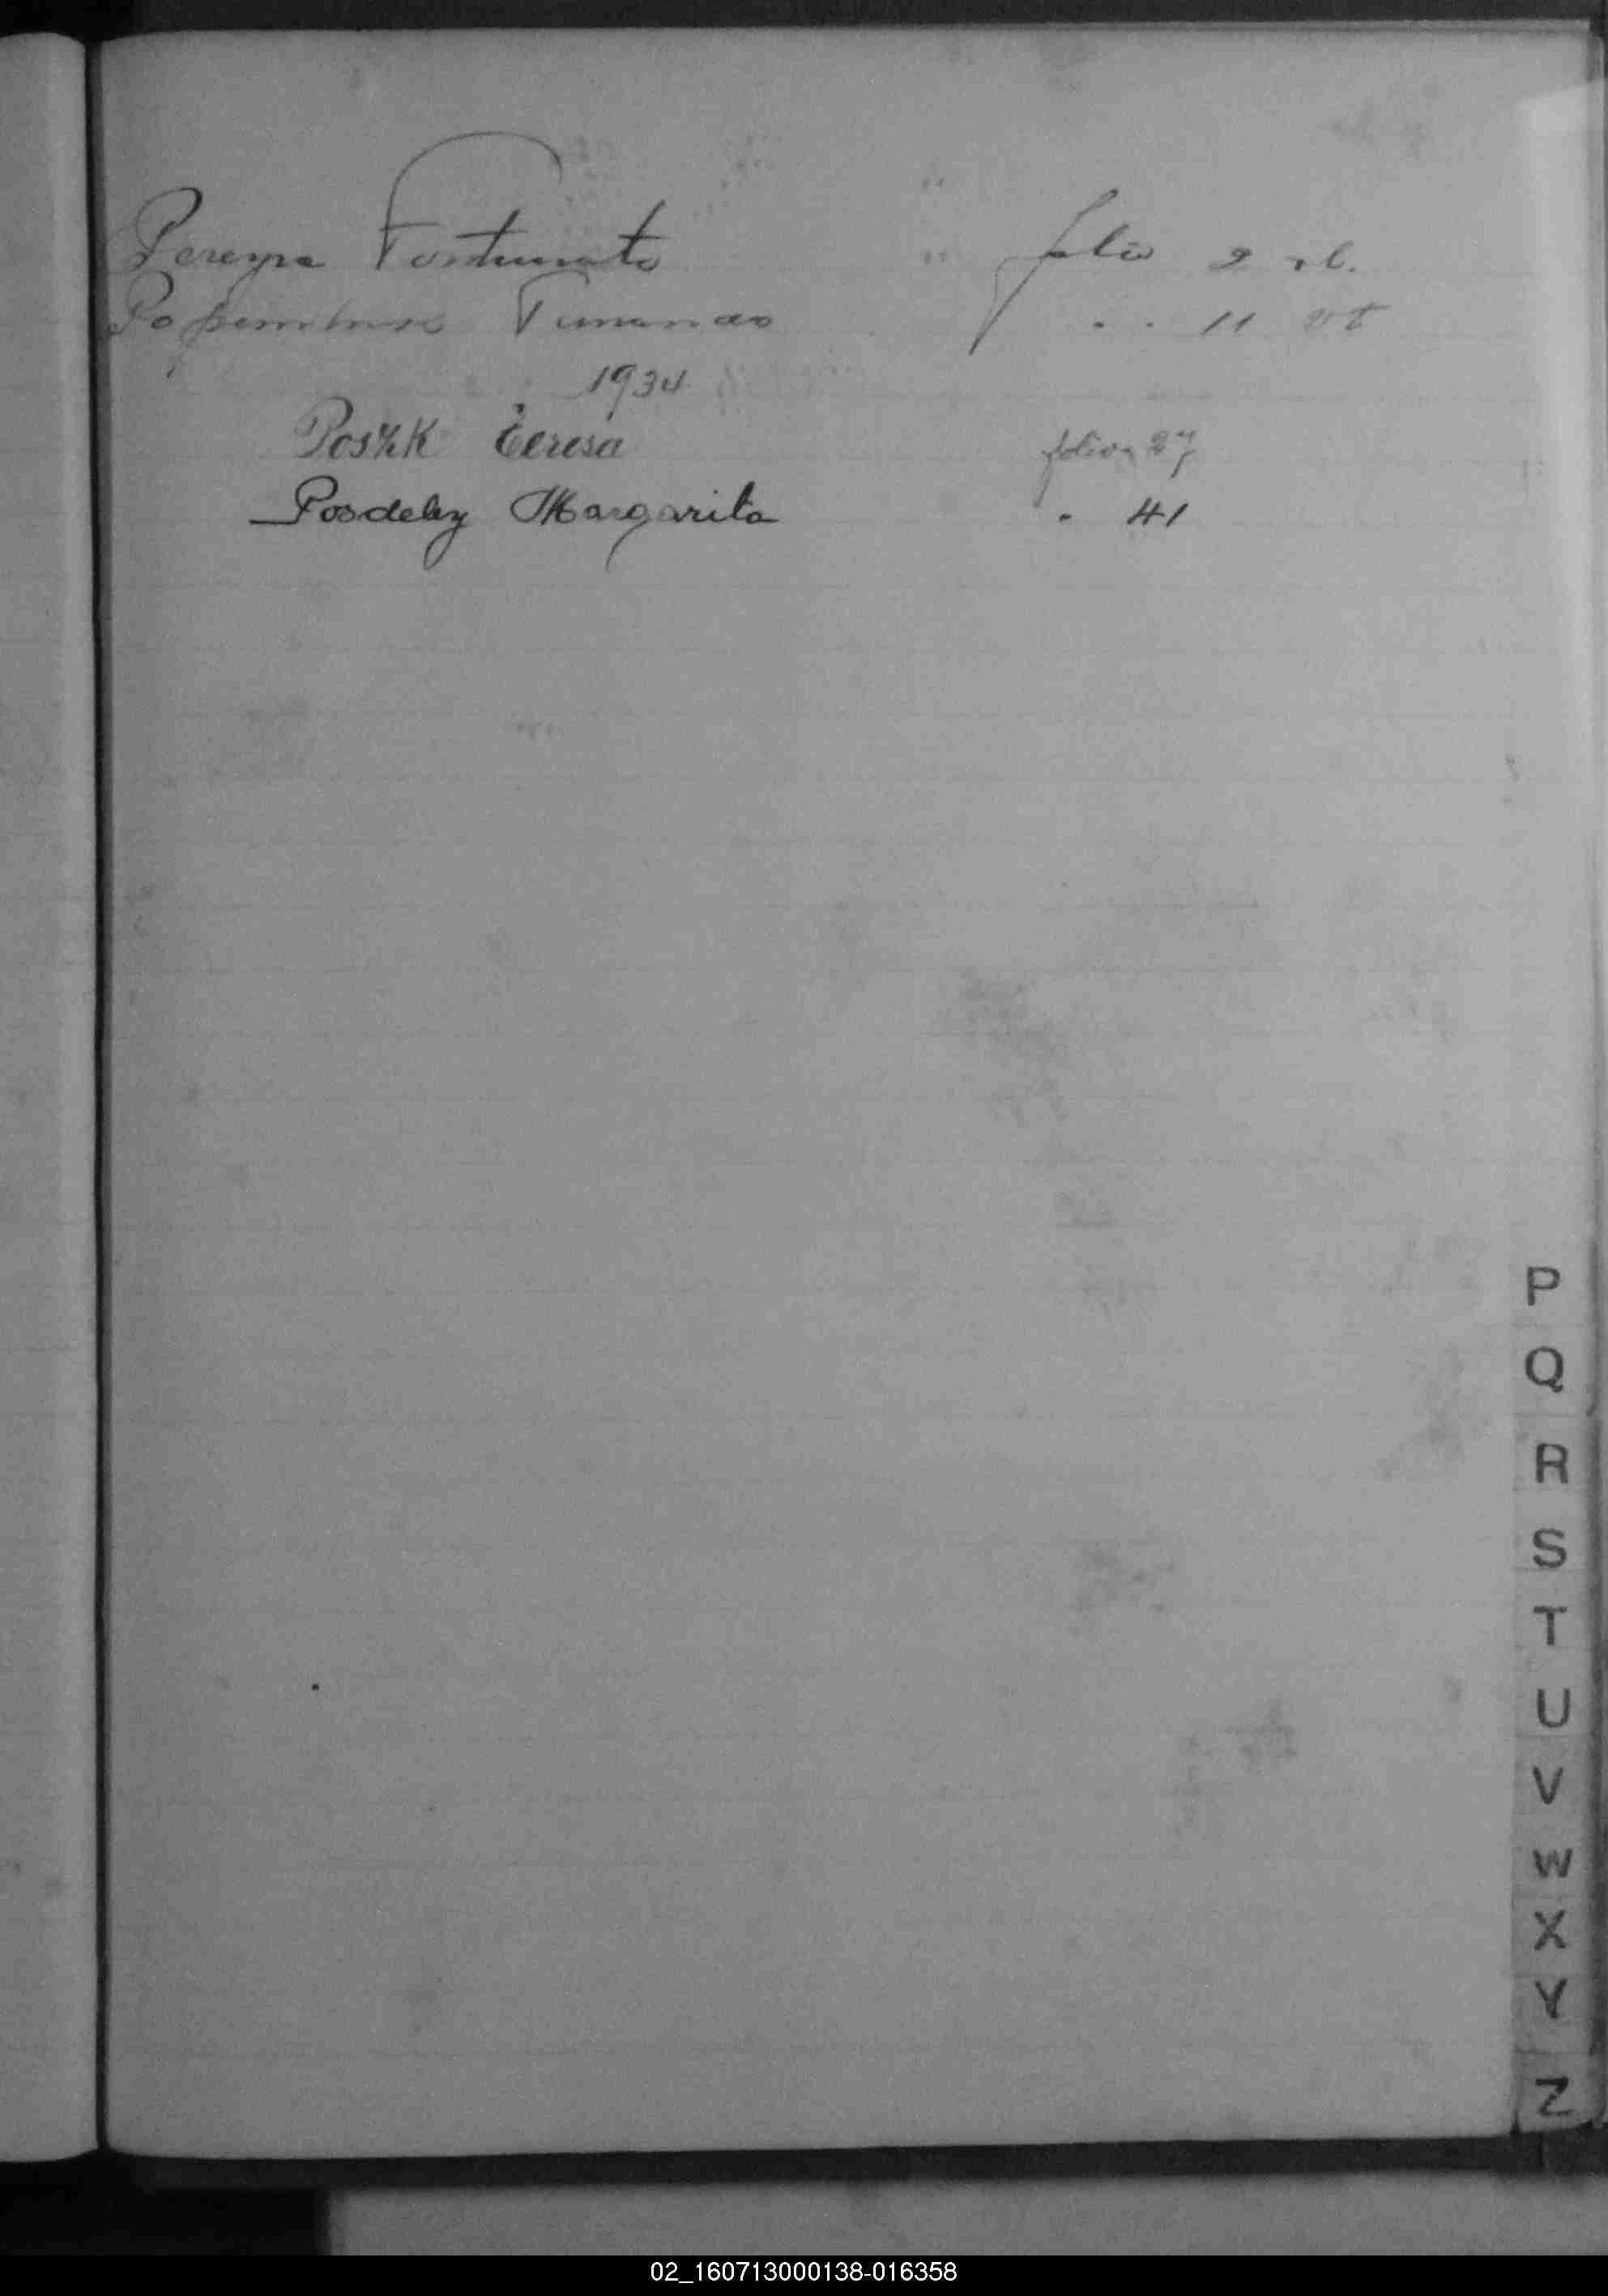 Pereyra Fortunato folio 2 vt.
" 11 vt
1934
Poszk Teresa folio 27
Posdeley Margarita " 41
P
Q
R
S
T
U
V
W
X
Y
Z
02_160713000138-016358